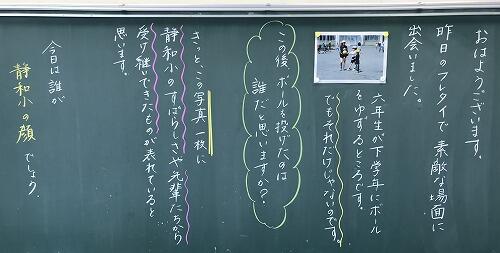 おはようございます。
昨日のフレタイで素敵な場面に
出会いました。
六年生が下学年にボール
をゆずるところです。
でもそれだけじゃないのです。
この後、ボールを投げたのは
誰だと思いますか？
きっと、この写真一枚に
静和小のすばらしさや先輩たちから
受け継いできたものが表れていると
思います。
今日は誰が
静和小の顔でしょう。